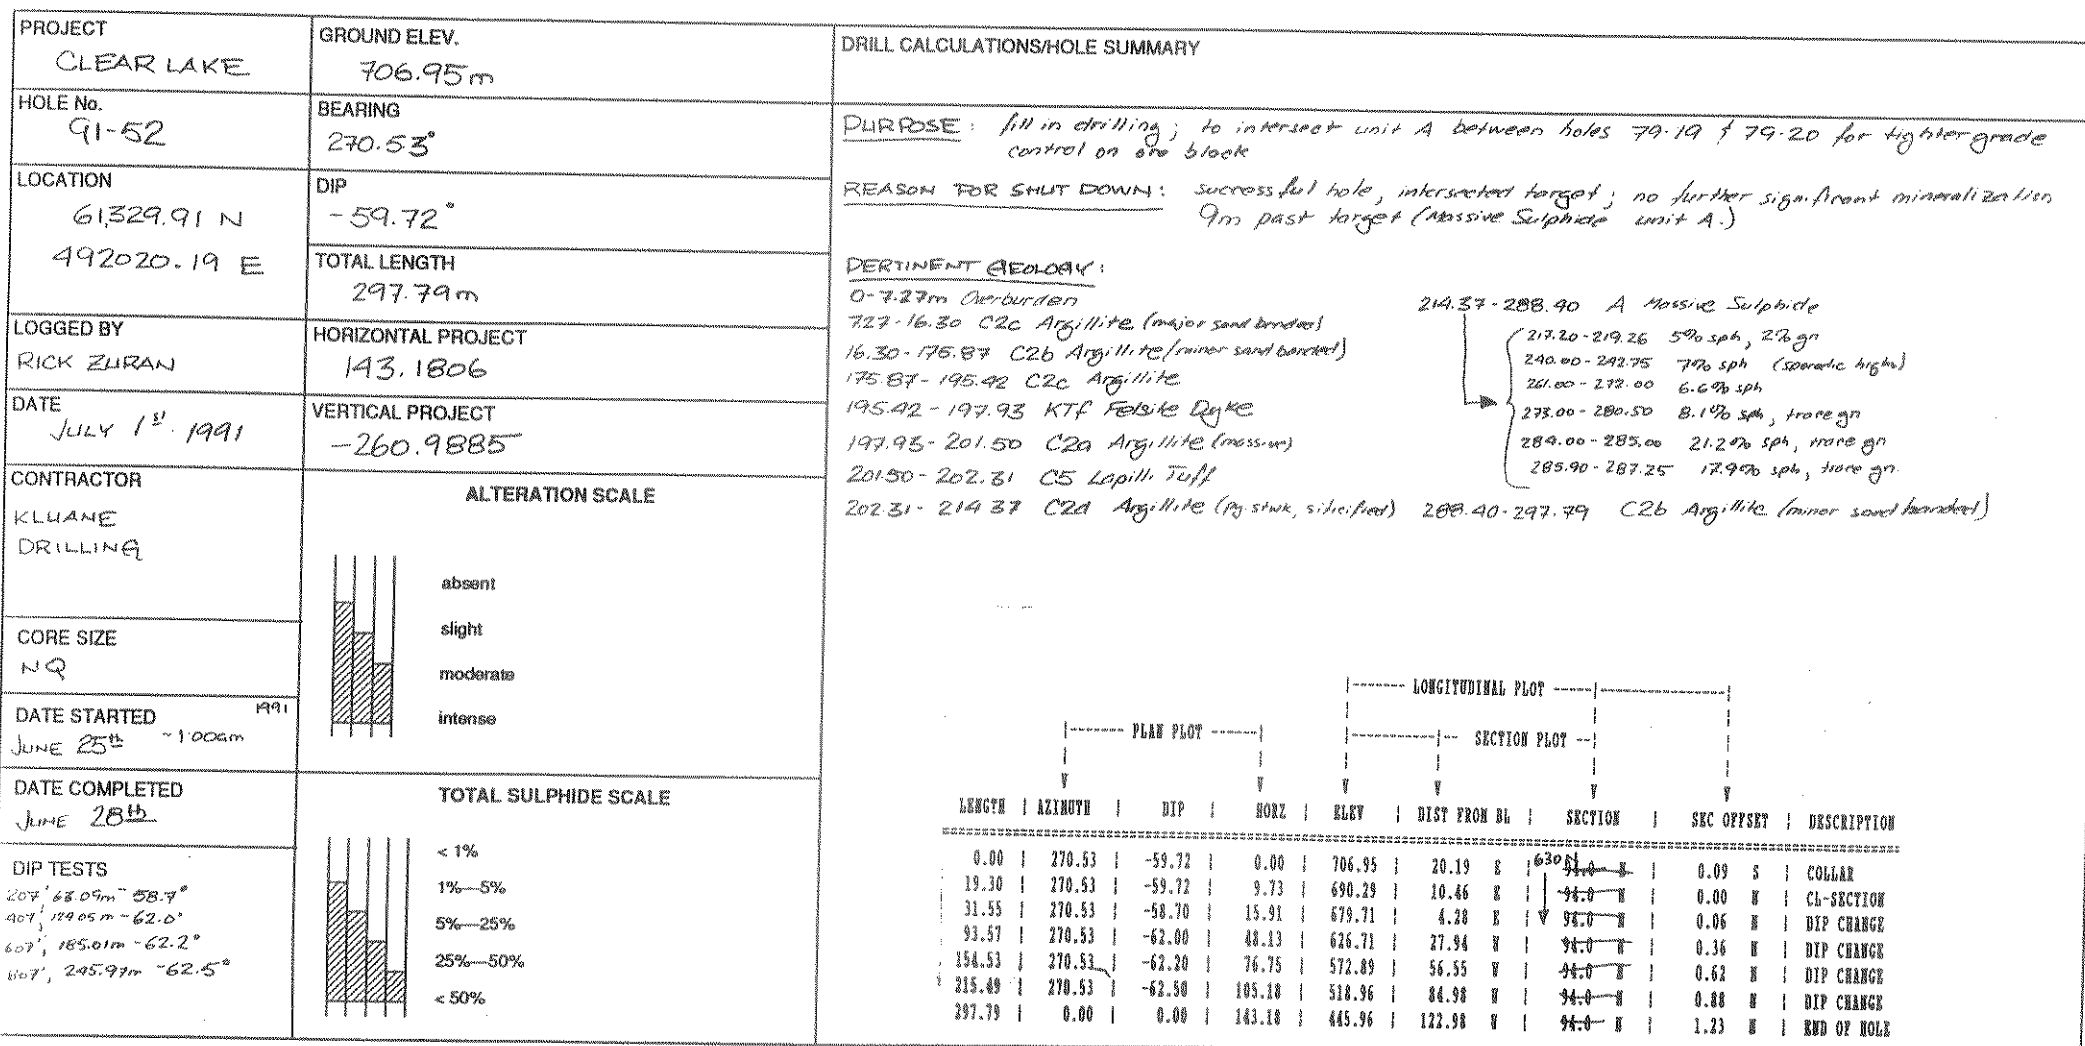 PROJECT
CLEAR LAKE
HOLE No.
91-52
LOCATION
61,329.91 N
492020.19 E
LOGGED BY
RICK ZURAN
DATE
JULY 1st 1991
CONTRACTOR
KLUANE
DRILLING
CORE SIZE
NQ
DATE STARTED 1991
JUNE 25th ~1:00am
DATE COMPLETED
JUNE 28th
DIP TESTS
207' 63.09m -58.7°
407', 124.05m -62.0°
607', 185.01m -62.2°
807', 245.97m -62.5°
GROUND ELEV.
706.95m
BEARING
270.53°
DIP
-59.72°
TOTAL LENGTH
297.79m
HORIZONTAL PROJECT
143.1806
VERTICAL PROJECT
-260.9885
ALTERATION SCALE
absent
slight
moderate
intense
TOTAL SULPHIDE SCALE
< 1%
1%—5%
5%—25%
25%—50%
< 50%
DRILL CALCULATIONS/HOLE SUMMARY
PURPOSE: fill in drilling; to intersect unit A between holes 79-19 & 79-20 for tighter grade
control on ore block
REASON FOR SHUT DOWN: successful hole, intersected target; no further significant mineralization
9m past target (Massive Sulphide unit A.)
PERTINENT GEOLOGY:
0-7.27m Overburden
7.27-16.30 C2c Argillite (major sand banded)
16.30-175.87 C2b Argillite (minor sand banded)
175.87-195.42 C2c Argillite
195.42-197.93 KTf Felsite Dyke
197.93-201.50 C2a Argillite (massive)
201.50-202.31 C5 Lapilli Tuff
202.31-214.37 C2d Argillite (py stwk, silicified)
214.37-288.40 A Massive Sulphide
217.20-219.26 5% sph, 2% gn
240.00-242.75 7% sph (sporadic highs)
261.00-272.00 6.6% sph
273.00-280.50 8.1% sph, trace gn
284.00-285.00 21.2% sph, trace gn
285.90-287.25 17.9% sph, trace gn.
288.40-297.79 C2b Argillite (minor sand banded)
|------- LONGITUDINAL PLOT -----|--------------|
|------- PLAN PLOT ------| |-----------|-- SECTION PLOT --|
LENGTH | AZIMUTH | DIP | HORZ | ELEV | DIST FROM BL | SECTION | SEC OFFSET | DESCRIPTION
0.00 | 270.53 | -59.72 | 0.00 | 706.95 | 20.19 E | 630 N 94.0 N | 0.09 S | COLLAR
19.30 | 270.53 | -59.72 | 9.73 | 690.29 | 10.46 E | 94.0 N | 0.00 N | CL-SECTION
31.55 | 270.53 | -58.70 | 15.91 | 679.71 | 4.28 E | 94.0 N | 0.06 N | DIP CHANGE
93.57 | 270.53 | -62.00 | 48.13 | 626.71 | 27.94 W | 94.0 N | 0.36 N | DIP CHANGE
154.53 | 270.53 | -62.20 | 76.75 | 572.89 | 56.55 W | 94.0 N | 0.62 N | DIP CHANGE
215.49 | 270.53 | -62.50 | 105.18 | 518.96 | 84.98 W | 94.0 N | 0.88 N | DIP CHANGE
297.79 | 0.00 | 0.00 | 143.18 | 445.96 | 122.98 W | 94.0 N | 1.23 N | END OF HOLE